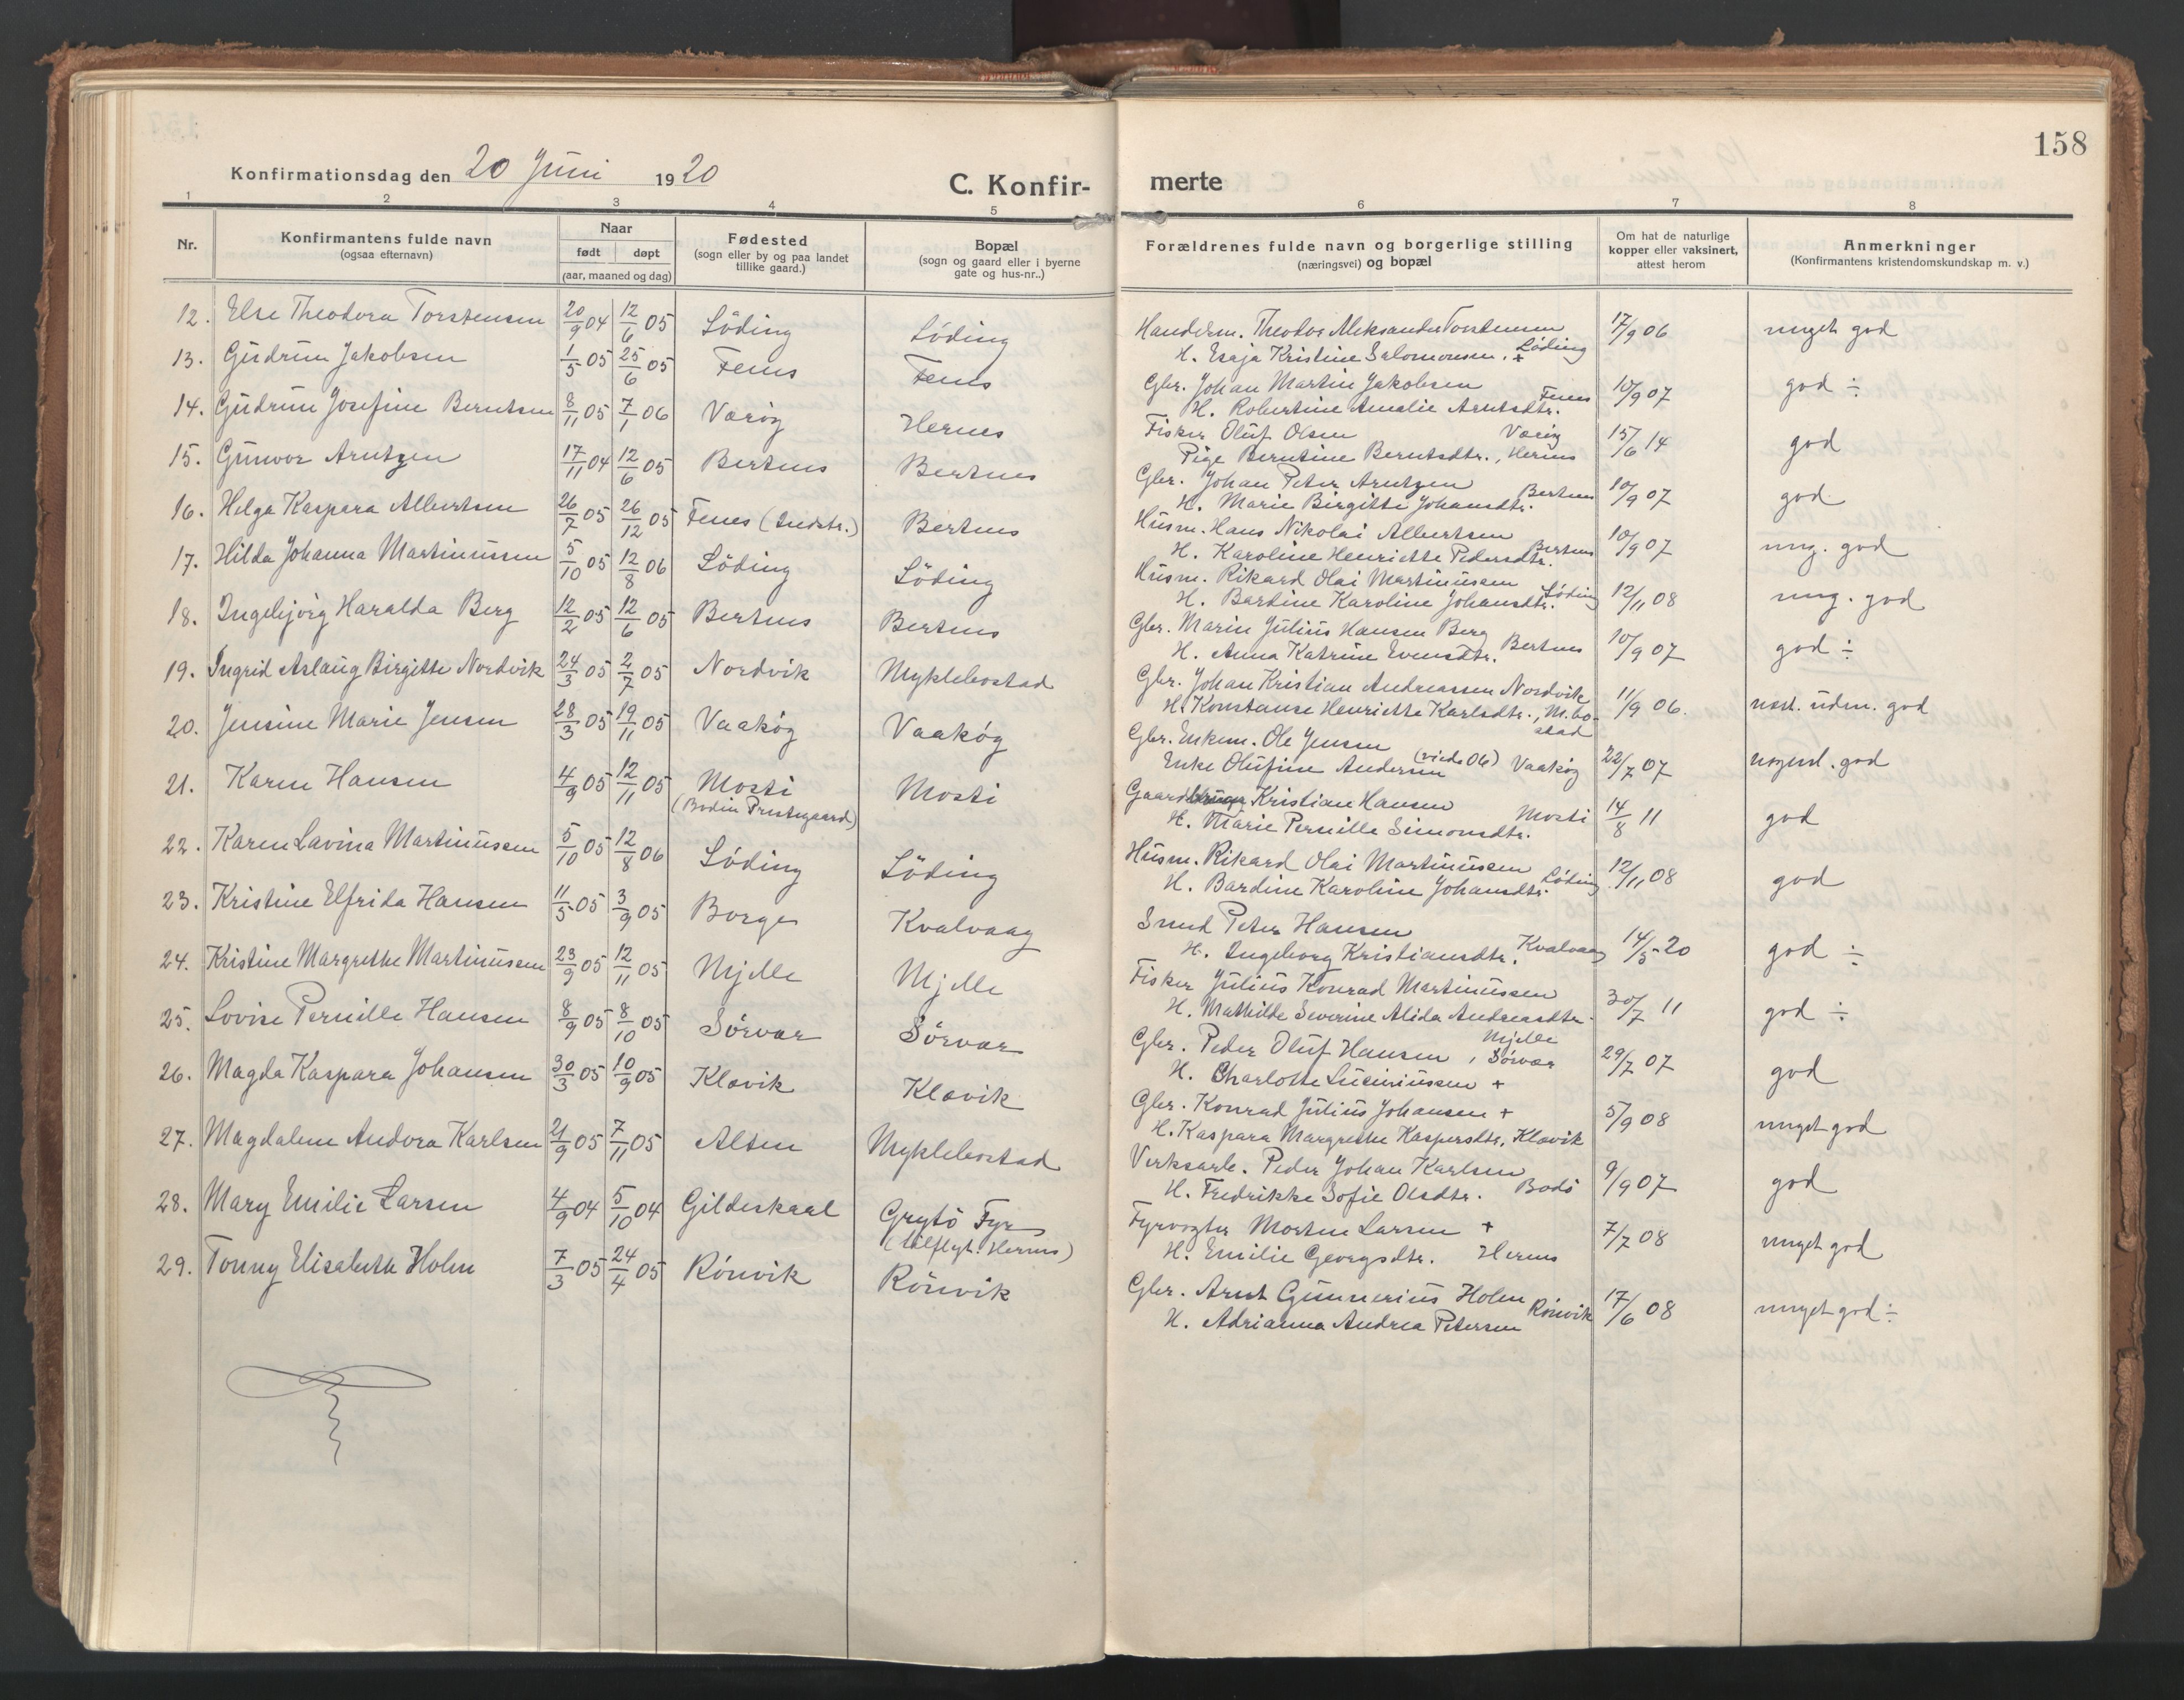 158
Konfirmationsdag den 20 Juni 1920
C. Konfir-
merte
1 2 3 4 5 6 7 8
Nr.
Konfirmantens fulde navn
(ogsaa efternavn)
Naar
født døpt
(aar, maaned og dag)
Fødested
(sogn eller by og paa landet
tillike gaard.)
Bopæl
(sogn og gaard eller i byerne
gate og hus-nr..)
Forældrenes fulde navn og borgerlige stilling
(næringsvei) og bopæl
Om hat de naturlige
kopper eller vaksinert,
attest herom
Anmerkninger
(Konfirmantens kristendomskundskap m. v.)
12. Else Theodora Torstensen 20/9 04 12/6 05 Löding Löding
Handelsm. Theodor Aleksander Torstensen 17/9 06 meget god
H. Esaja Kristine Salomonsen. + Løding
13. Gudrun Jakobsen 1/5 05 25/6 05 Fenes Fenes
Gbr. Johan Martin Jakobsen 10/9 07 god ÷
H. Robertine Amalie Arntsdtr. Fenes
14. Gudrun Josefine Berntsen 8/11 05 7/1 06 Værøy Hernes
Fisker Oluf Olsen Værøy 15/6 14 god
Pige Berntine Berntsdtr., Hernes
15. Gunvor Arntzen 17/11 04 12/6 05 Bertnes Bertnes
Gbr. Johan Peter Arntzen 10/9 07 god
H. Marie Birgitte Johansdtr. Bertnes
16. Helga Kaspara Albertsen 26/7 05 26/12 05 Fenes (Indstr.) Bertnes
Husm. Hans Nikolai Albertsen 10/9 07 meg. god
H. Karoline Henriette Pedersdtr. Bertnes
17. Hilda Johanna Martinussen 5/10 05 12/8 06 Löding Löding
Husm. Rikard Olai Martinussen 12/11 08 meg. god
H. Bardine Karoline Johansdtr. Løding
18. Ingebjörg Haralda Berg 12/2 05 12/6 05 Bertnes Bertnes
Gbr. Marin Julius Hansen Berg 10/9 07 god ÷
H. Anna Katrine Evensdtr. Bertnes
19. Ingrid Aslaug Birgitte Nordvik 24/3 05 2/7 05 Nordvik Myklebostad
Gbr. Johan Kristian Andreassen Nordvik 11/9 06. næst. udm. god
H. Konstanse Henriette Karlsdtr., M.bo-
stad
20. Jensine Marie Jensen 28/3 05 19/11 05 Vaakøy Vaakøy
Gbr. Enkem. Ole Jensen 22/7 07 nogenl. god
Enke Olufine Andersen (viede 06) Vaakøy
21. Karen Hansen 4/9 05 12/11 05 Mosti Mosti
(Bodin Prestegaard)
Gaardbruger Kristian Hansen 14/8 11 god
H. Marie Pernille Simonsdtr. Mosti
22. Karen Lavina Martinussen 5/10 05 12/8 06 Löding Löding
Husm. Rikard Olai Martinussen 12/11 08 god
H. Bardine Karoline Johansdtr. Løding
23. Kristine Elfrida Hansen 11/5 05 3/9 05 Borge Kvalvaag
Smed Peter Hansen 14/5 20 god ÷
H. Ingeborg Kristiansdtr. Kvalvaag
24. Kristine Margrethe Martinussen 23/9 05 12/11 05 Mjelle Mjelle
Fisker Julius Konrad Martinussen 30/7 11 god ÷
H. Mathilde Severine Alida Andreasdtr.
Mjelle
25. Lovise Pernille Hansen 8/9 05 8/10 05 Sörvær Sörvær
Gbr. Peder Oluf Hansen, Sörvær 29/7 07 god
H. Charlotte Lucinussen +
26. Magda Kaspara Johansen 30/3 05 10/9 05 Klævik Klævik
Gbr. Konrad Julius Johansen + 5/9 08 meget god
H. Kaspara Margrethe Kaspersdtr. Klævik
27. Magdalene Andora Karlsen 21/9 05 7/11 05 Alten Myklebostad
Verksarb. Peder Johan Karlsen 9/9 07 god
H. Fredrikke Sofie Olsdtr. Bodö
28. Mary Emilie Larsen 4/9 04 5/10 04 Gildeskaal Grytö Fyr
(tilflyt. Hernes)
Fyrvogter Morten Larsen + 7/7 08 meget god
H. Emilie Georgsdtr. Hernes
29. Tonny Elisabeth Holm 7/3 05 24/4 05 Rönvik Rönvik
Gbr. Arnt Gunnerius Holm Rönvik 17/6 08 meget god ÷
H. Adrianna Andrea Petersen